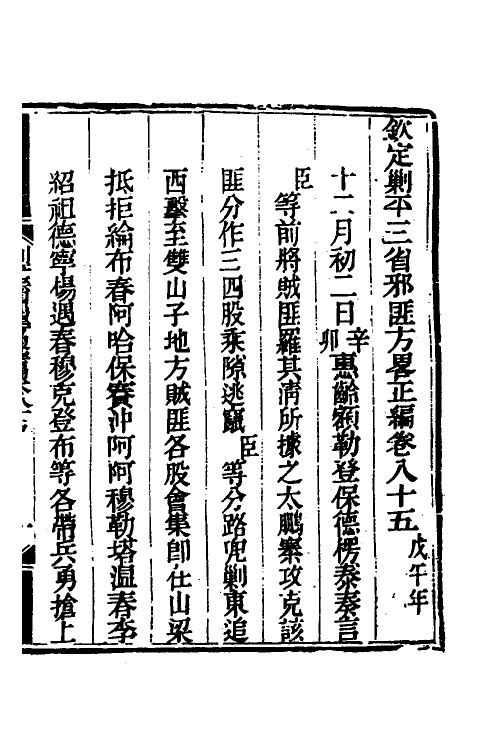 欽定剿平三省邪匪方畧正編卷八十五戊午年
十二月初二日辛卯惠齡額勒登保德楞泰奏言
臣等前將賊匪羅其清所據之太鵬寨攻克該
匪分作三四股乘隙逃竄臣等分路兜剿東追
西擊至雙山子地方賊匪各股會集卽在山梁
抵拒綸布春阿哈保賽沖阿阿穆勒塔溫春李
紹祖德寧楊遇春穆克登布等各帶兵勇搶上